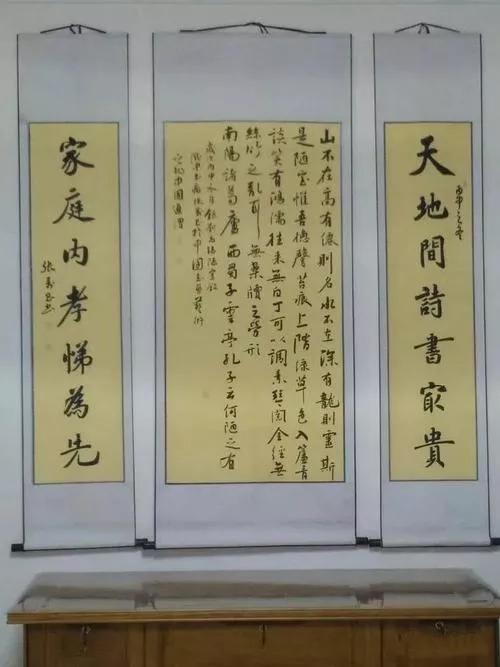 天地間詩書㝡貴
丙申之冬
山不在高有僊則名水不在深有龍則靈斯
是陋室惟吾德馨苔痕上階綠草色入簾青
談笑有鴻儒往來無白丁可以調素琴閱金經無
絲竹之亂耳無案牘之勞形
南陽諸葛廬西蜀子雲亭孔子云何陋之有
歲次丙申冬月錄劉禹錫陋室銘
家庭内孝悌為先